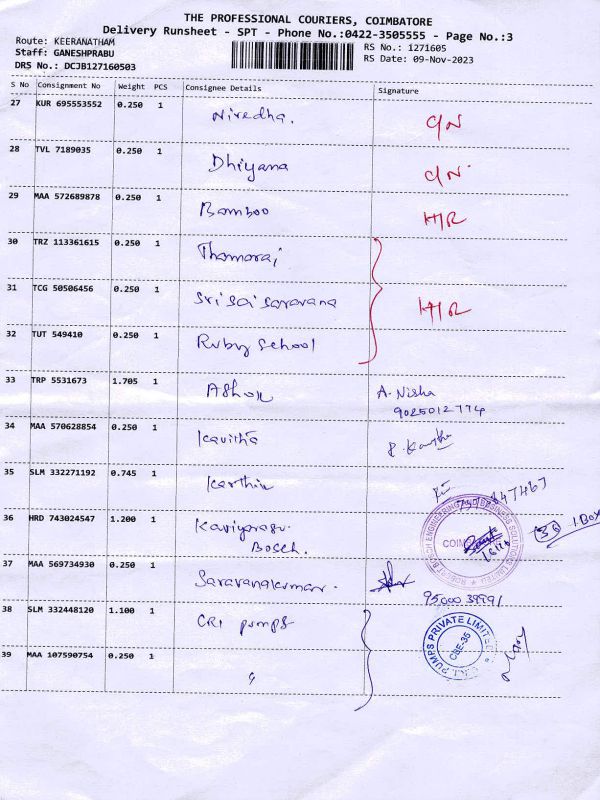 THE PROFESSIONAL COURIERS, COIMBATORE
Delivery Runsheet - SPT - Phone No.:0422-3505555 - Page No.:3
Route: KEERANATHAM
Staff: GANESHPRABU
DRS No.: DCJB127160503
RS No.: 1271605
RS Date: 09-Nov-2023
S No Consignment No Weight PCS Consignee Details Signature
27 KUR 695553552 0.250 1 Nivedha. C/N
28 TVL 7189035 0.250 1 Dhiyana C/N
29 MAA 572689878 0.250 1 Bamboo H/R
30 TRZ 113361615 0.250 1 Thamaraj
31 TCG 50506456 0.250 1 Sri Sai Saravana H/R
32 TUT 549410 0.250 1 Ruby School
33 TRP 5531673 1.705 1 Ashok A. Nisha
9025012774
34 MAA 570628854 0.250 1 Kavitha
35 SLM 332271192 0.745 1 Karthik
36 HRD 743024547 1.200 1 Kaviyarasu. 36 1 BOX
Bosch.
37 MAA 569734930 0.250 1 Saravanakumar. 9500039991
38 SLM 332448120 1.100 1 CRI pumps
39 MAA 107590754 0.250 1 "
ROBERT BOSCH ENGINEERING AND BUSINESS SOLUTIONS LIMITED
C.R.I. PUMPS PRIVATE LIMITED
CBE-35